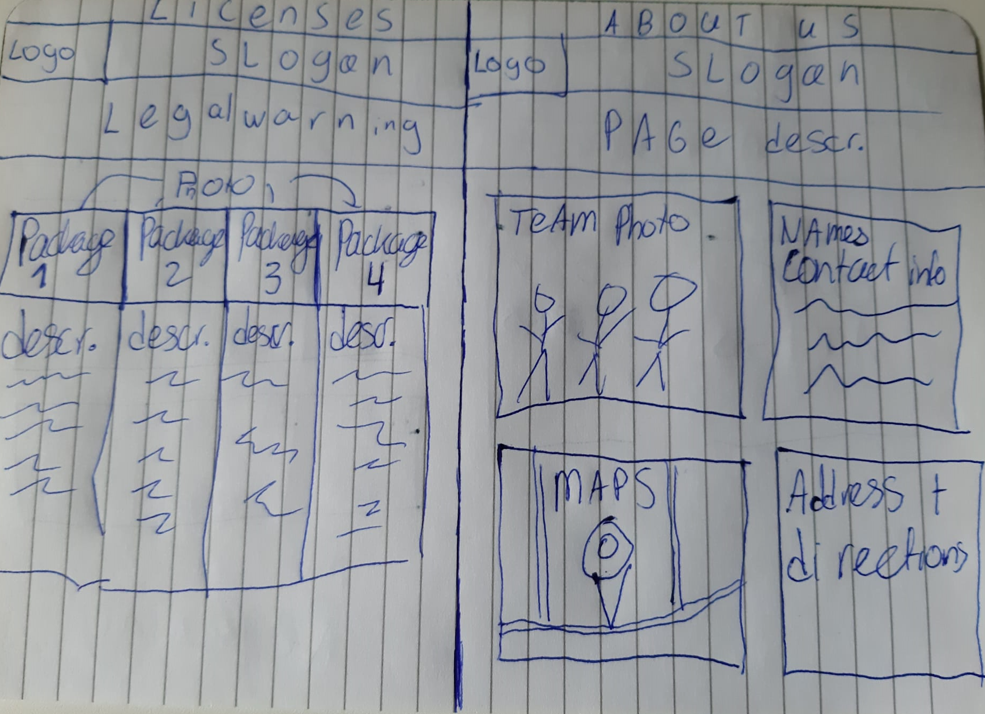 Licenses
Logo
SLogan
Legalwarning
Photo
Package 1
Package 2
Package 3
Package 4
descr.
descr.
descr.
descr.
ABOUT uS
Logo
SLogan
PAGe descr.
TeAm Photo.
NAmes
Contact info
MAPS
Address +
directions